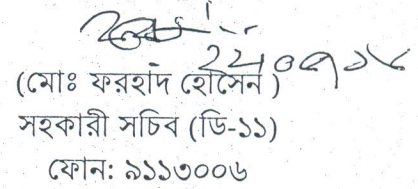 (মোঃ ফরহাদ হোসেন)
সহকারী সচিব (ডি-১১)
ফোন: ৯১১৩০০৬